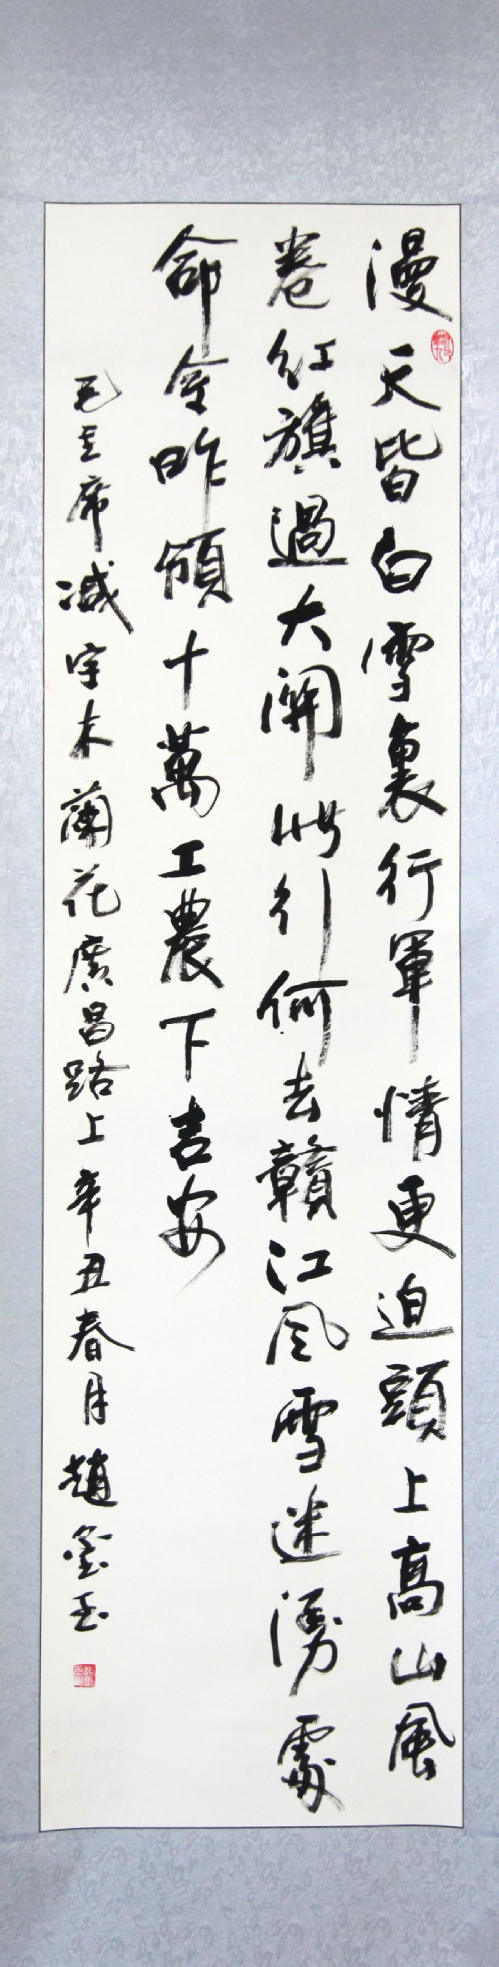 漫天皆白雪裏行軍情更迫頭上高山風
卷紅旗過大關此行何去贛江风雪迷漫處
命令昨頒十萬工農下吉安
毛主席减字木蘭花廣昌路上辛丑春月趙玉